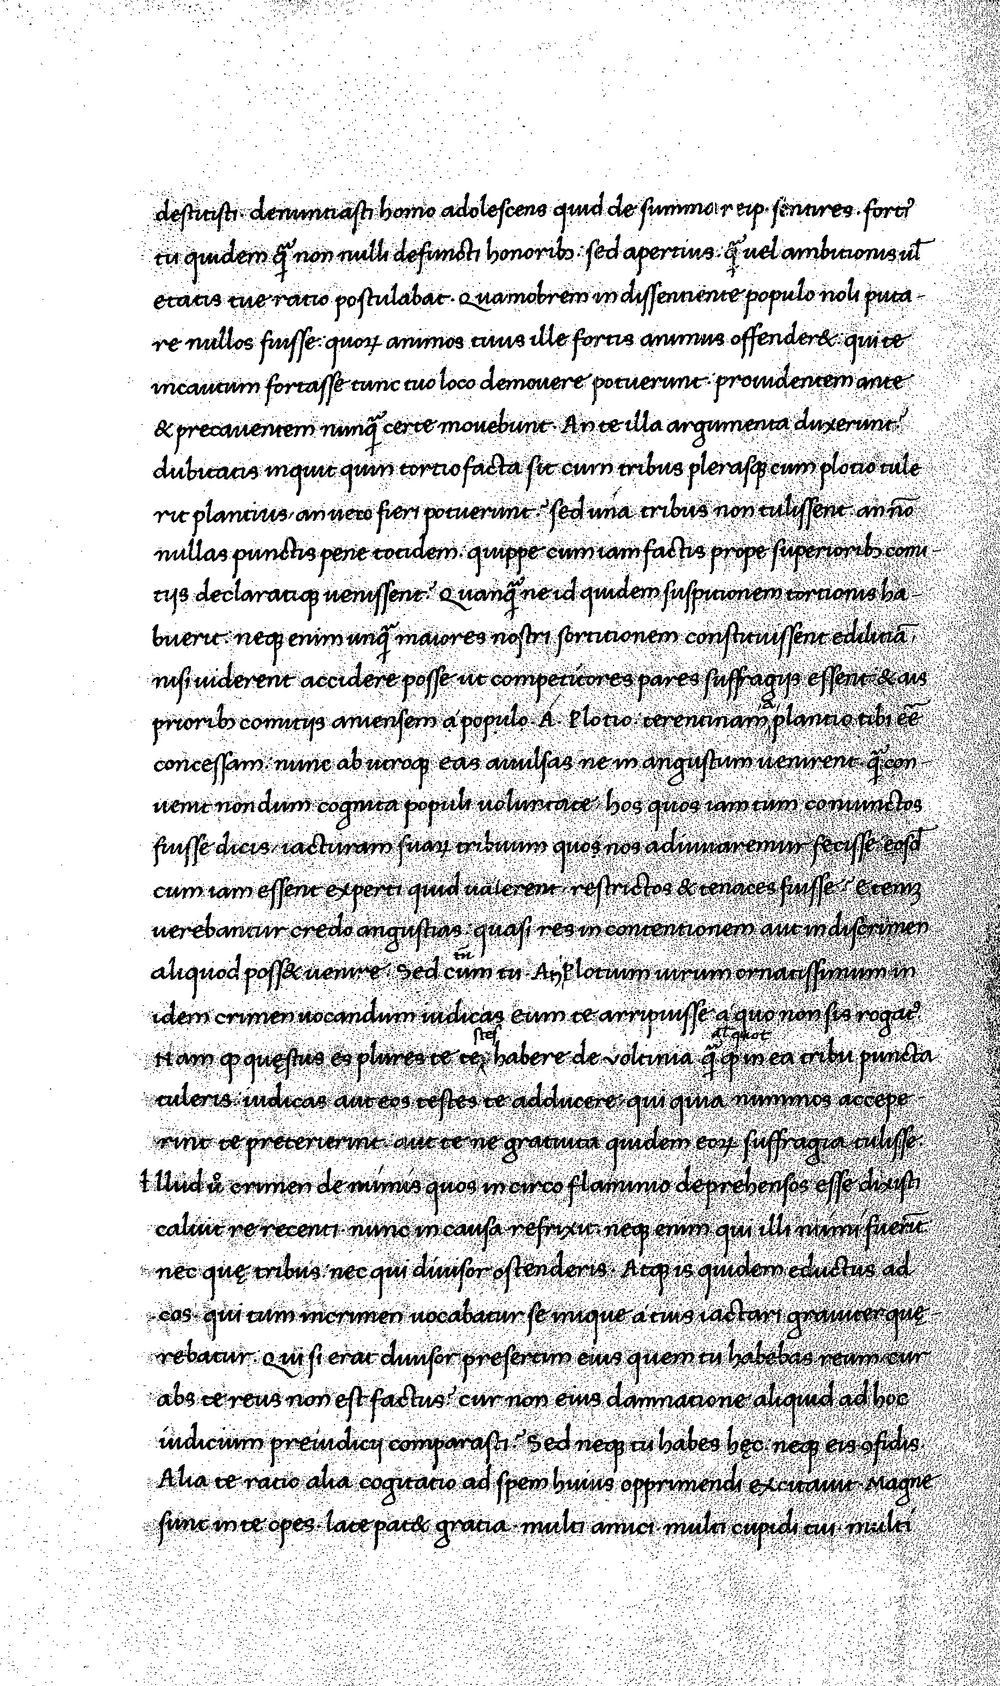 destitisti. denuntiasti homo adolescens quid de summa reip. sentires. forti᾽
tu quidem q̃ꝫ non nulli defuncti honorib; sed apertius. q̃ꝫ uel ambitionis ul̃
etatis tue ratio postulabat. Quamobrem in dissentiente populo noli puta-
re nullos fuisse. quoꝝ animos tuus ille fortis animus offender&. qui te
incautum fortasse tunc tuo loco demouere potuerunt. prouidentem ante
& precauentem nunq̃ꝫ certe mouebunt. An te illa argumenta duxerunt?
dubitatis inquit quin tortio facta sit cum tribus plerasqꝫ cum plotio tule
rit plantius. an uero fieri potuerunt? sed una tribus non tulissent. an nō
nullas punctis pene totidem. quippe cum iam factis prope superiorib; comi-
tijs declaratiqꝫ uenissent? Quanq̃ꝫ ne id quidem suspitionem tortionis ha-
buerit. neqꝫ enim unq̃ꝫ maiores nostri sortitionem constituissent edilitiā,
nisi uiderent accidere posse ut competitores pares suffragijs essent. & ais
priorib; comitijs aniensem a populo. A. Plotio. terentinam a plantio tibi eē
concessam. nunc ab utroqꝫ eas auulsas ne in angustum uenirent. q̃ꝫ con-
uenit nondum cognita populi uoluntate. hos quos iam tum coniunctos
fuisse dicis. iacturam suaꝝ tribuum quos nos adiuuaremur fecisse. eosd̃
cum iam essent experti quid ualerent. restrictos & tenaces fuisse? Etenim
uerebantur credo angustias. quasi res in contentionem aut in discrimen
aliquod poss& uenire. Sed cum tn̄ tu. An Plotium uirum ornatissimum in
idem crimen uocandum iudicas eum te arripuisse a quo non sis rogat᾽.
Nam qp questus es plures te testes habere de voltinia q̃ꝫ qp al̃ quot in ea tribu puncta
tuleris. iudicas aut eos testes te adducere. qui quia nummos accepe-
rint te preterierint. aut te ne gratuita quidem eoꝝ suffragia tulisse.
Illud ů crimen de nimiis quos in circo flaminio deprehensos esse dixisti
caluit re recenti. nunc in causa refrixit. neqꝫ enim qui illi nimi fuerīt
nec quę tribus. nec qui diuisor ostenderis. Atqꝫ is quidem eductus ad
cos. qui tum in crimen uocabatur se inique a tuis iactari grauiter que-
rebatur. Qui si erat diuisor presertim eius quem tu habebas reum. cur
abs te reus non est factus? cur non eius damnatione aliquid ad hoc
iudicium preiudicij comparasti? Sed neqꝫ tu habes hęc. neqꝫ eis ꝯfidis.
Alia te ratio alia cogitatio ad spem huius opprimendi excitauit. Magne
sunt in te opes. late pat& gratia. multi amici. multi cupidi tui. multi